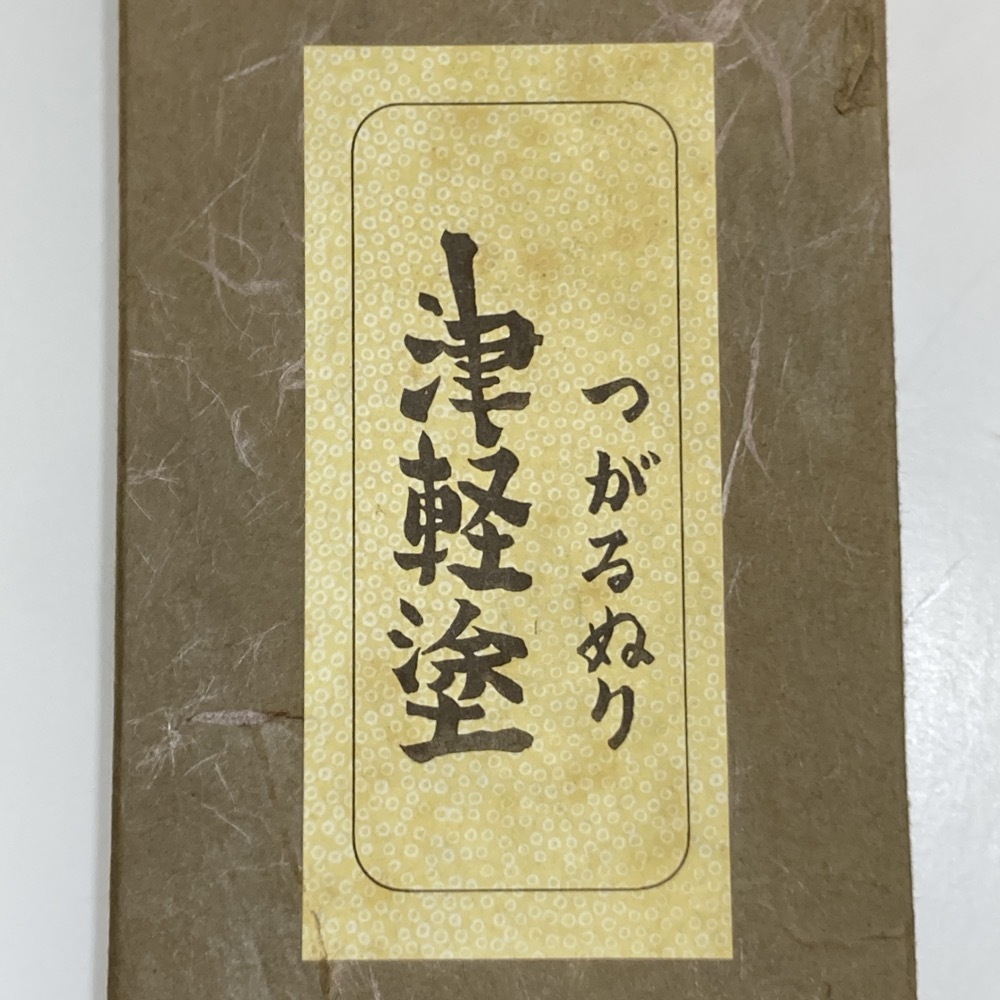 つがるぬり
津軽塗